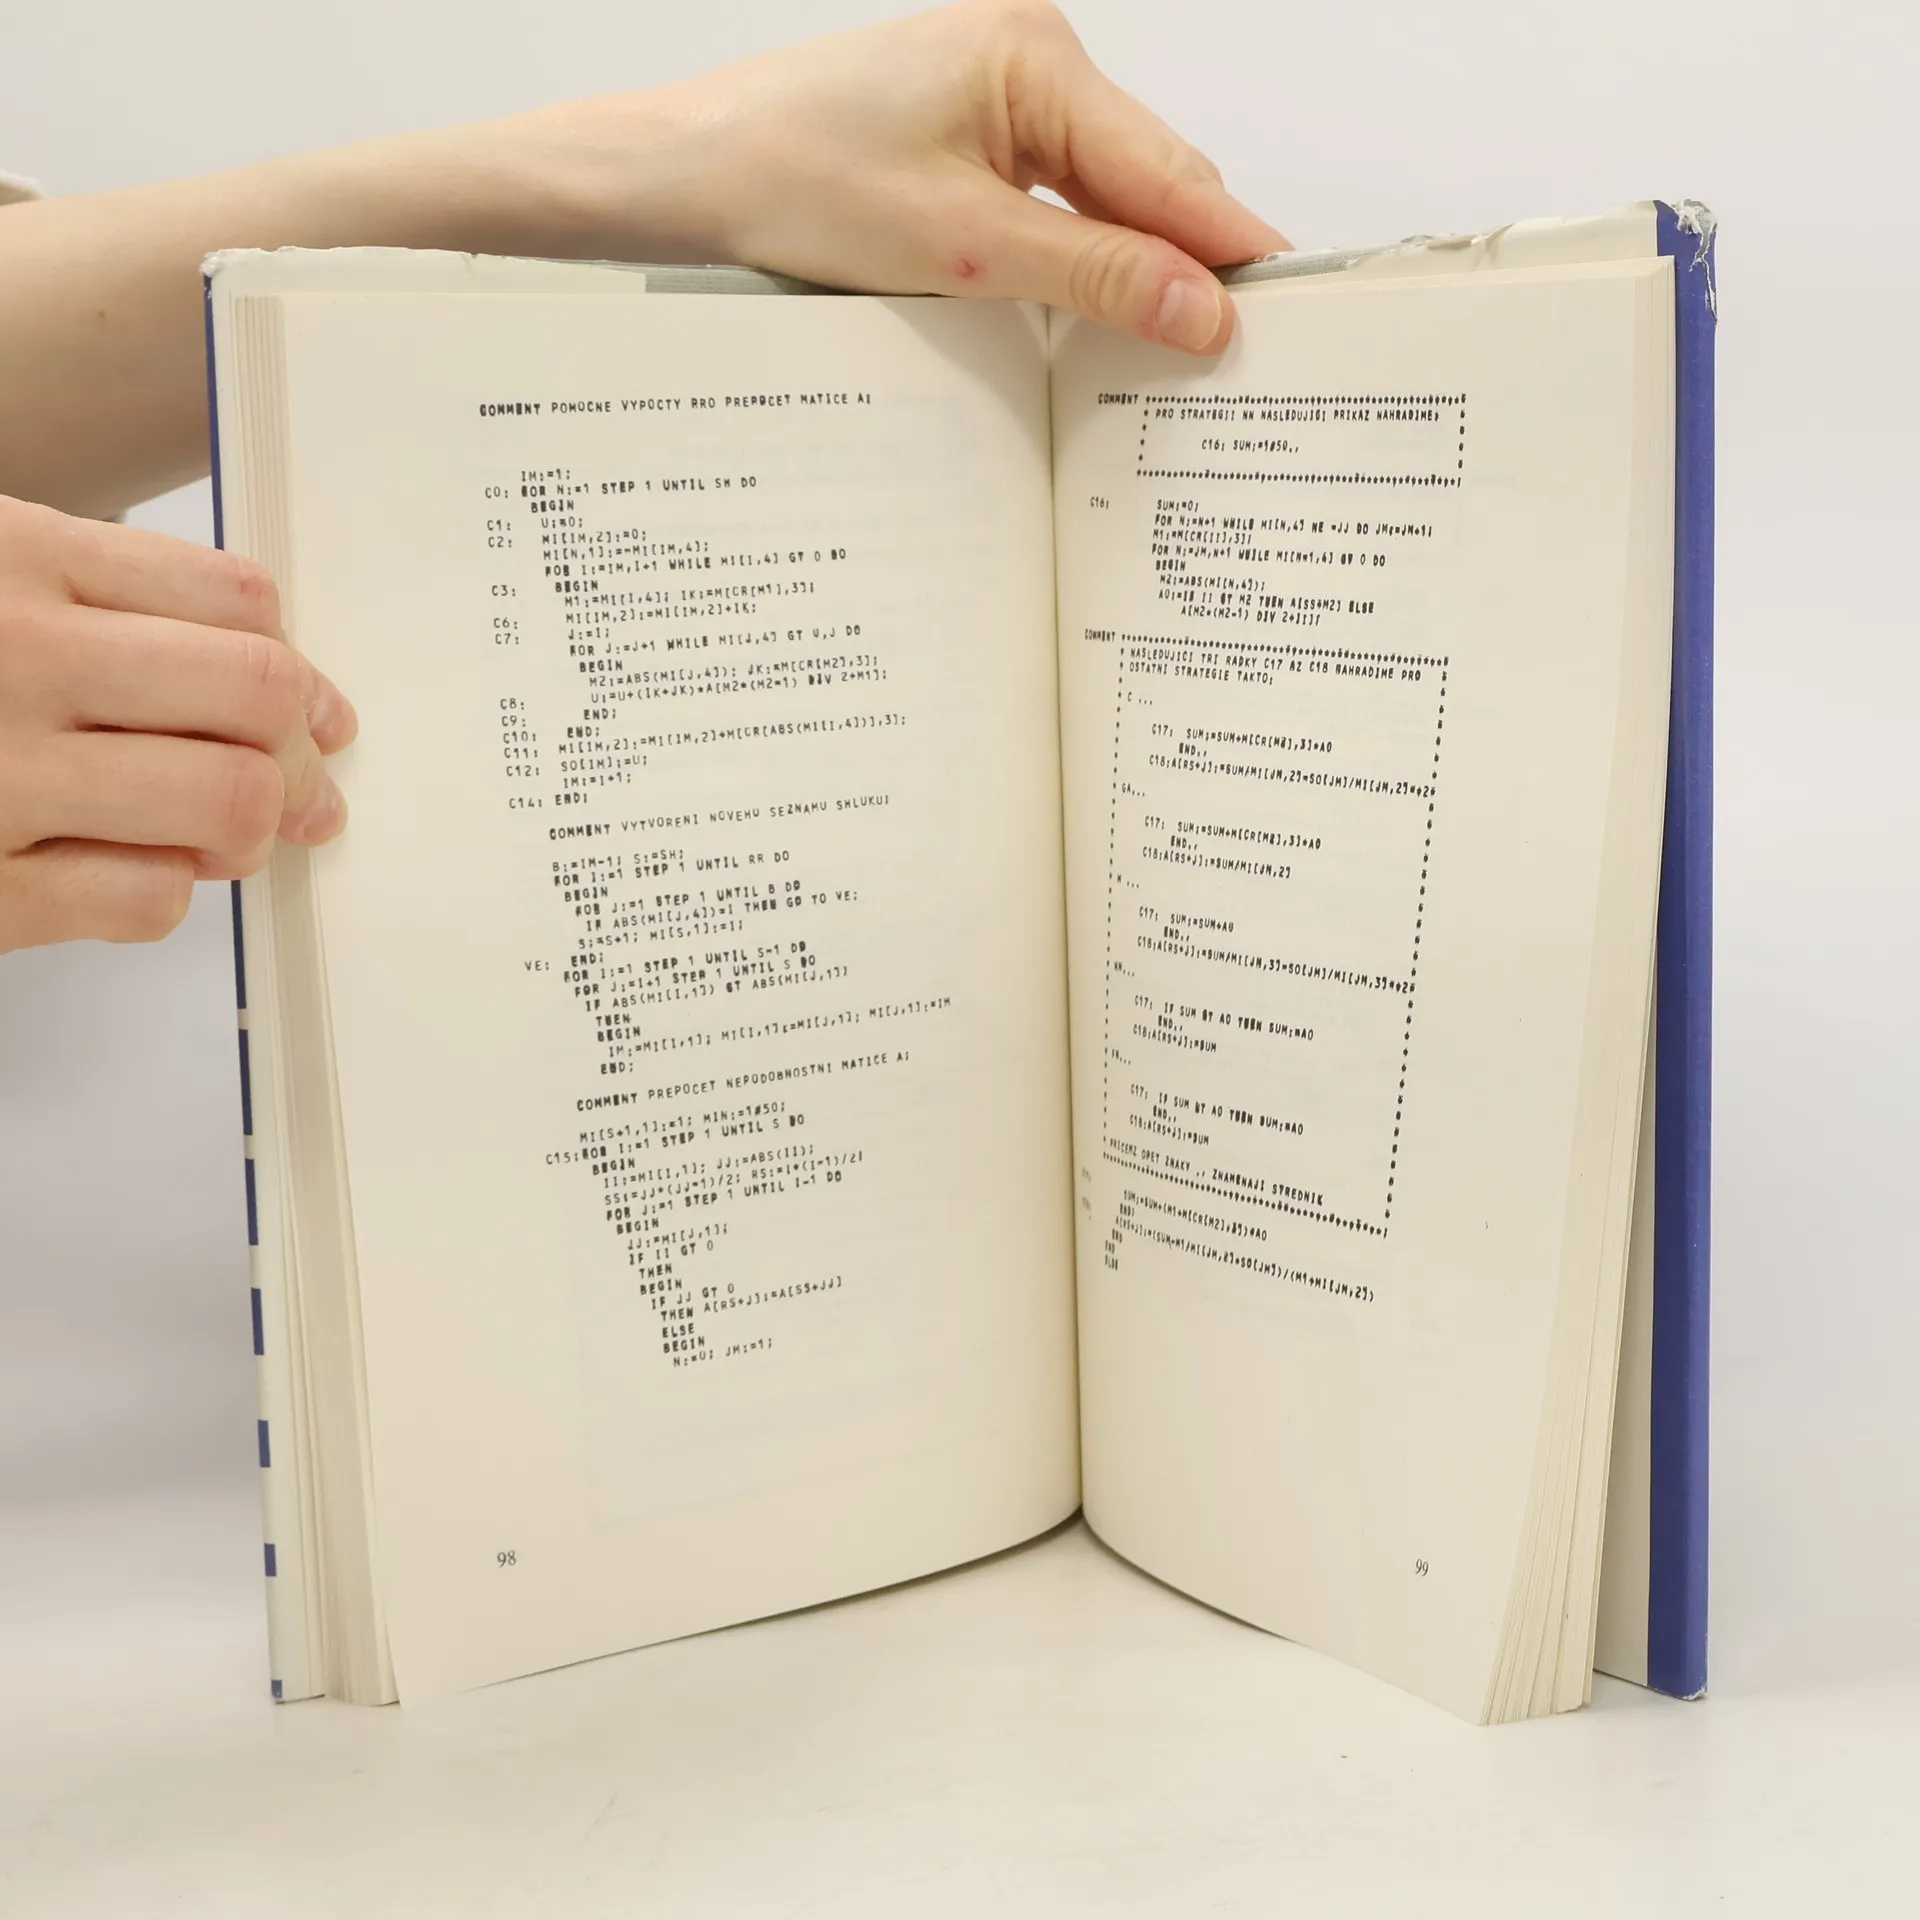 COMMENT POMOCNE VYPOCTY RRO PREPOCET MATICE A;
IM:=1;
C0: FOR N:=1 STEP 1 UNTIL SH DO
BEGIN
C1: U:=0;
C2: MI[IM,2]:=0;
MI[N,1]:=-MI[IM,4];
FOR I:=IM,I+1 WHILE MI[I,4] GT 0 DO
C3: BEGIN
M1:=MI[I,4]; IK:=M[CR[M1],3];
C6: MI[IM,2]:=MI[IM,2]+IK;
C7: J:=I;
FOR J:=J+1 WHILE MI[J,4] GT U,J DO
BEGIN
M2:=ABS(MI[J,4]); JK:=M[CR[M2],3];
C8: U:=U+(IK+JK)*A[M2*(M2-1) DIV 2+M1];
C9: END;
C10: END;
C11: MI[IM,2]:=MI[IM,2]+M[CR[ABS(MI[I,4])],3];
C12: SO[IM]:=U;
IM:=I+1;
C14: END;
COMMENT VYTVORENI NOVEHO SEZNAMU SHLUKU;
B:=IM-1; S:=SH;
FOR I:=1 STEP 1 UNTIL RR DO
BEGIN
FOR J:=1 STEP 1 UNTIL B DO
IF ABS(MI[J,4])=I THEN GO TO VE;
S:=S+1; MI[S,1]:=I;
VE: END;
FOR I:=1 STEP 1 UNTIL S-1 DO
FOR J:=I+1 STEP 1 UNTIL S DO
IF ABS(MI[I,1]) GT ABS(MI[J,1])
THEN
BEGIN
IM:=MI[I,1]; MI[I,1]:=MI[J,1]; MI[J,1]:=IM
END;
COMMENT PREPOCET NEPODOBNOSTNI MATICE A;
MI[S+1,1]:=1; MIN:=1#50;
C15:FOR I:=1 STEP 1 UNTIL S DO
BEGIN
II:=MI[I,1]; JJ:=ABS(II);
SS:=JJ*(JJ-1)/2; RS:=I*(I-1)/2;
FOR J:=1 STEP 1 UNTIL I-1 DO
BEGIN
JJ:=MI[J,1];
IF II GT 0
THEN
BEGIN
IF JJ GT 0
THEN A[RS+J]:=A[SS+JJ]
ELSE
BEGIN
N:=0; JM:=1;
98
COMMENT
* PRO STRATEGII NN NASLEDUJICI PRIKAZ NAHRADIME:
C16: SUM:=1#50.,
C16: SUM:=0;
FOR N:=N+1 WHILE MI[N,4] NE -JJ DO JM:=JM+1;
M1:=M[CR[II],3];
FOR N:=JM,N+1 WHILE MI[N-1,4] GT 0 DO
BEGIN
M2:=ABS(MI[N,4]);
A0:=IF II GT M2 THEN A[SS+M2] ELSE
A[M2*(M2-1) DIV 2+II];
COMMENT
* NASLEDUJICI TRI RADKY C17 AZ C18 NAHRADIME PRO
* OSTATNI STRATEGIE TAKTO:
* C ...
C17: SUM:=SUM+M[CR[M2],3]*A0
END.,
C18:A[RS+J]:=SUM/MI[JM,2]-SO[JM]/MI[JM,2]**2
* GA...
C17: SUM:=SUM+M[CR[M2],3]*A0
END.,
C18:A[RS+J]:=SUM/MI[JM,2]
* M ...
C17: SUM:=SUM+A0
END.,
C18:A[RS+J]:=SUM/MI[JM,3]-SO[JM]/MI[JM,3]**2
* NN...
C17: IF SUM GT A0 THEN SUM:=A0
END.,
C18:A[RS+J]:=SUM
* FN...
C17: IF SUM GT A0 THEN SUM:=A0
END.,
C18:A[RS+J]:=SUM
* PRICEMZ OPET ZNAKY ., ZNAMENAJI STREDNIK
SUM:=SUM+(M1+M[CR[M2],3])*A0
END;
A[RS+J]:=(SUM-M1/MI[JM,2]*SO[JM])/(M1+MI[JM,2])
END
END
ELSE
99